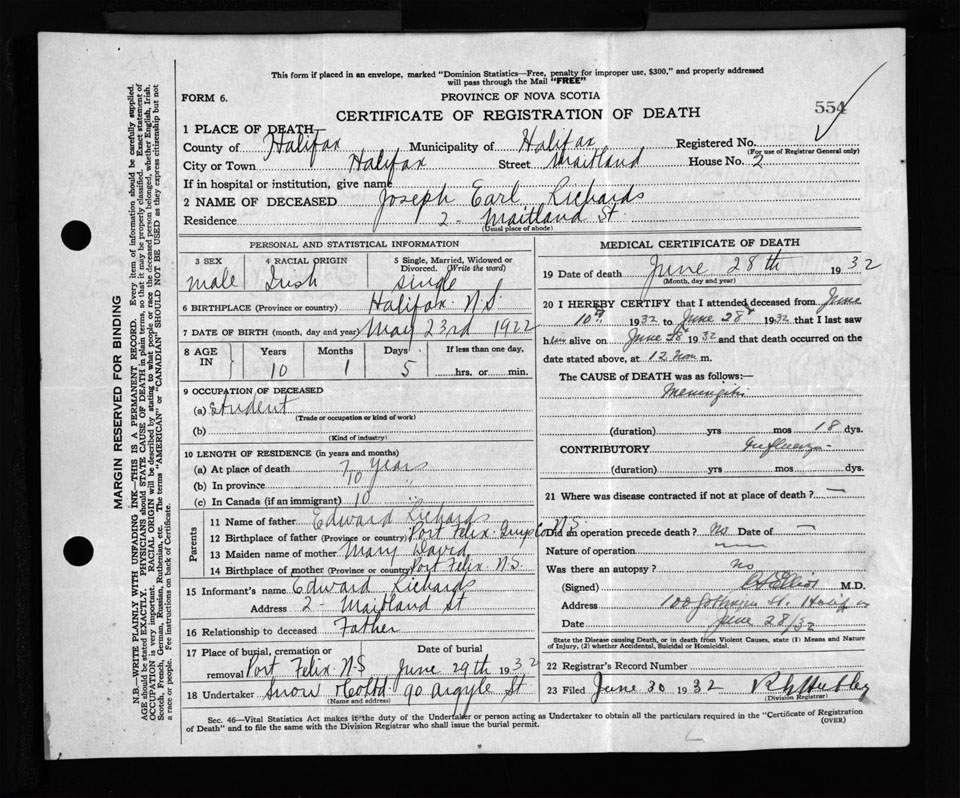 This form if placed in an envelope, marked "Dominion Statistics—Free, penalty for improper use, $300," and properly addressed
will pass through the Mail "FREE"
FORM 6.
PROVINCE OF NOVA SCOTIA
554
CERTIFICATE OF REGISTRATION OF DEATH
1 PLACE OF DEATH
County of Halifax Municipality of Halifax Registered No.
(For use of Registrar General only)
City or Town Halifax Street Maitland House No. 2
If in hospital or institution, give name
2 NAME OF DECEASED Joseph Earl Richards
Residence 2 - Maitland St.
(Usual place of abode)
PERSONAL AND STATISTICAL INFORMATION
3 SEX 4 RACIAL ORIGIN 5 Single, Married, Widowed or
Divorced. (Write the word)
male Irish Single
6 BIRTHPLACE (Province or country) Halifax N.S.
7 DATE OF BIRTH (month, day and year) May 23rd 1922
8 AGE IN Years Months Days If less than one day,
10 1 5 hrs. or min.
9 OCCUPATION OF DECEASED
(a) Student
(Trade or occupation or kind of work)
(b)
(Kind of industry)
10 LENGTH OF RESIDENCE (in years and months)
(a) At place of death 7 years
(b) In province 10 "
(c) In Canada (if an immigrant) 10 "
Parents
11 Name of father Edward Richards
12 Birthplace of father (Province or country) Port Felix Guys Co N.S.
13 Maiden name of mother Mary David
14 Birthplace of mother (Province or country) Port Felix N.S.
15 Informant's name Edward Richards
Address 2 - Maitland St
16 Relationship to deceased Father
17 Place of burial, cremation or removal Date of burial
Port Felix N.S June 29th 1932
18 Undertaker Snow & Co Ltd 90 Argyle St
(Name and address)
MEDICAL CERTIFICATE OF DEATH
19 Date of death June 28th 1932
(Month, day and year)
20 I HEREBY CERTIFY that I attended deceased from June
10th 1932 to June 28th 1932 that I last saw
him alive on June 28 1932 and that death occurred on the
date stated above, at 12 Noon m.
The CAUSE of DEATH was as follows:—
Meningitis
(duration) yrs mos 18 dys.
CONTRIBUTORY Influenza
(duration) yrs. mos dys.
21 Where was disease contracted if not at place of death? —
Did an operation precede death? No Date of —
Nature of operation
Was there an autopsy? No
(Signed) Elliot M.D.
Address 100 Gottingen St. Halifax
Date June 28/32
State the Disease causing Death, or in death from Violent Causes, state (1) Means and Nature
of Injury, (2) whether Accidental, Suicidal or Homicidal.
22 Registrar's Record Number
23 Filed June 30 1932 Hubley
(Division Registrar)
Sec. 46—Vital Statistics Act makes it the duty of the Undertaker or person acting as Undertaker to obtain all the particulars required in the "Certificate of Registration
of Death" and to file the same with the Division Registrar who shall issue the burial permit. (OVER)
MARGIN RESERVED FOR BINDING
N.B.—WRITE PLAINLY WITH UNFADING INK—THIS IS A PERMANENT RECORD. Every item of information should be carefully supplied.
AGE should be stated EXACTLY. PHYSICIANS should STATE CAUSE OF DEATH in plain terms, so that it may be properly classified. Exact statement of
OCCUPATION is very important. RACIAL ORIGIN will be described by stating to what people or race the deceased person belonged, whether English, Irish,
Scotch, French, German, Russian, Ruthenian, etc. The terms "AMERICAN" or "CANADIAN" SHOULD NOT BE USED as they express citizenship but not
a race or people. See instructions on back of Certificate.